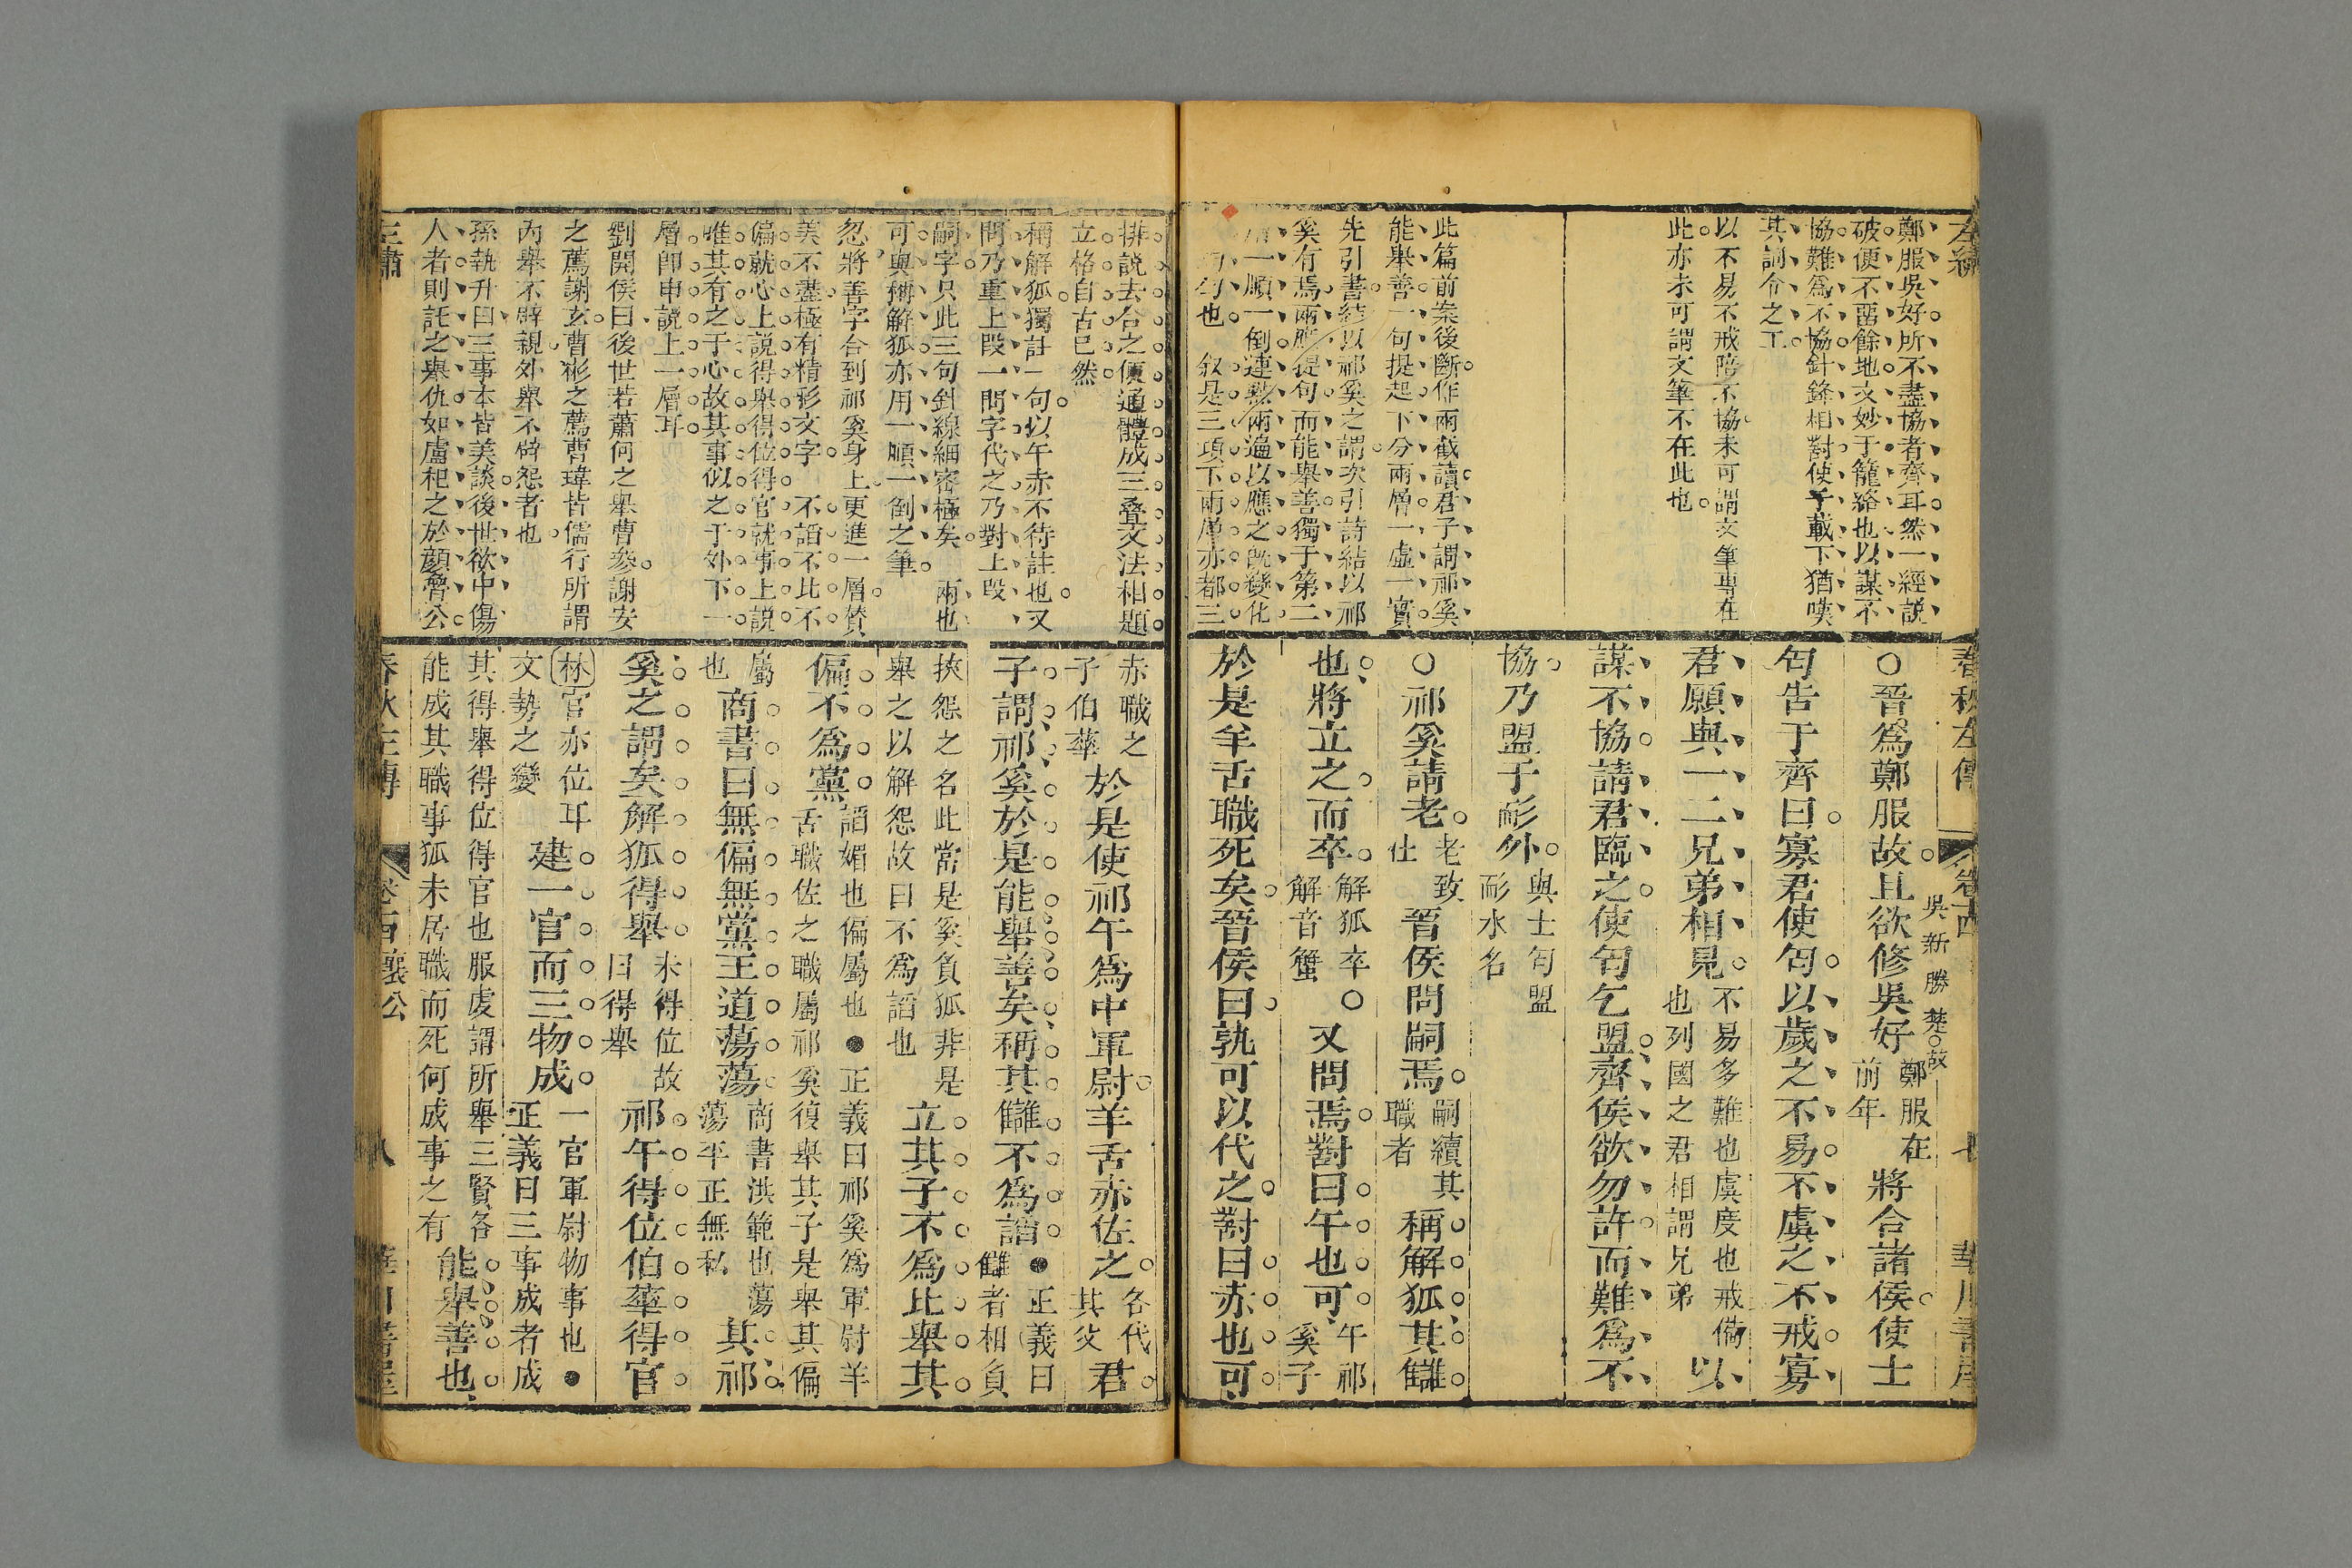 左繡
鄭服吳好所不盡協者齊耳然一經説
破便不畱餘地文妙于籠絡也以謀不
協難爲不協針鋒相對使乎載下猶嘆
其詞令之工
以不易不戒陪不協未可謂文筆專在
此亦未可謂文筆不在此也
此篇前案後斷作兩截讀君子謂祁奚
能舉善一句提起下分兩層一虛一實
先引書結以祁奚之謂次引詩結以祁
奚有焉兩應提句而能舉善獨于第二
一順一倒連熟兩遍以應之旣變化
勻也 叙是三項下兩層亦都三
春秋左傳 卷十四 七 華川書屋
吳新勝楚故
○晉爲鄭服故且欲修吳好鄭服在前年將合諸侯使士
匄告于齊曰寡君使匄以歲之不易不虞之不戒寡
君願與一二兄弟相見不易多難也虞度也戒備也列國之君相謂兄弟以
謀不協請君臨之使匄乞盟齊侯欲勿許而難爲不
協乃盟于耏外與士匄盟耏水名
○祁奚請老老致仕晉侯問嗣焉嗣續其職者稱解狐其讎
也將立之而卒解狐卒○解音蟹又問焉對曰午也可午祁奚子
於是羊舌職死矣晉侯曰孰可以代之對曰赤也可
排説去合之便通體成三叠文法相題
立格自古已然
稱解狐獨註一句以午赤不待註也又
問乃重上段一問字代之乃對上段
嗣字只此三句針線細密極矣 兩也
可與稱解狐亦用一順一倒之筆
忽將善字合到祁奚身上更進一層贊
美不盡極有精彩文字 不謟不比不
偏就心上説得舉得位得官就事上説
唯其有之于心故其事似之于外下一
層卽申說上一層耳
劉開侯曰後世若蕭何之舉曹參謝安
之薦謝玄曹彬之薦曹瑋皆儒行所謂
內舉不辟親外舉不辟怨者也
孫執升曰三事本皆美談後世欲中傷
人者則託之舉仇如盧杞之於顏魯公
左繡
赤職之子伯華於是使祁午爲中軍尉羊舌赤佐之各代其父君
子謂祁奚於是能舉善矣稱其讎不爲謟●正義曰讎者相負
挾怨之名此當是奚負狐非是舉之以解怨故曰不爲謟也立其子不爲比舉其
偏不爲黨謟媚也偏屬也●正義曰祁奚爲軍尉羊舌職佐之職屬祁奚復舉其子是舉其偏
屬也商書曰無偏無黨王道蕩蕩商書洪範也蕩蕩平正無私其祁
奚之謂矣解狐得舉未得位故曰得舉祁午得位伯華得官
林官亦位耳文勢之變建一官而三物成一官軍尉物事也●正義曰三事成者成
其得舉得位得官也服虔謂所舉三賢各能成其職事狐未居職而死何成事之有能舉善也
春秋左傳 卷十四襄公 八 華川書屋